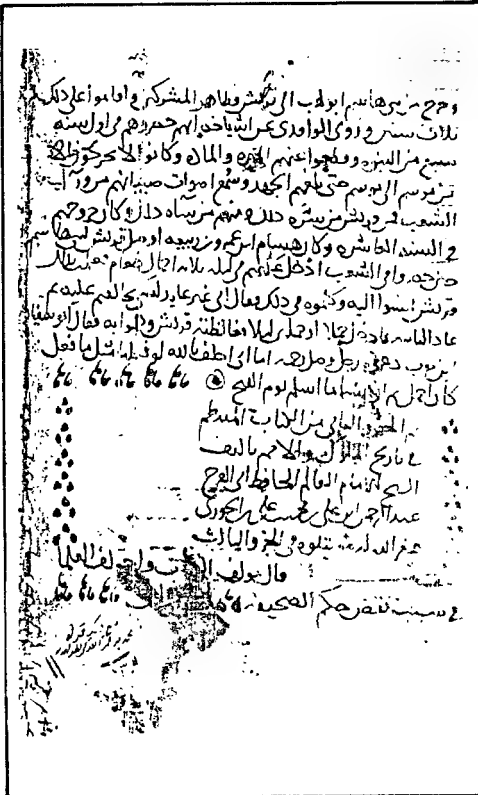 وخرج من بني هاشم ابو لهب الى قريش وظاهر المشركين واقاموا على ذلك
ثلاث سنين وروى الواقدي عن اشياخه انهم حصروهم في اول سنه
سبع من النبوه وقطعوا عنهم الميره والماده وكانوا لا يخرجون الا
من موسم الى موسم حتى بلغهم الجهد وسمع اصوات صبيانهم من ورآ
الشعب فمن قريش من سره ذلك ومنهم من ساه ذلك وكان خروجهم
في السنه العاشره وكان هشام ابن عمرو بن ربيعه اوصل قريش لبني هاشم
حين حصروا في الشعب ادخل عليهم في ليله ثلاثه احمال طعام فعلمت بذلك
قريش فمشوا اليه وكلموه في ذلك فقال اني غير عايد
عاد الثانيه فادخل حملا او حملين ليلا فغالظته قريش وهموا به فقال ابو سفيان
ابن حرب دعوه رجل وصل رحمه اما اني احلف بالله لو فعلنا مثل ما فعل
كان اجمل اسلم يوم الفتح
من الكتاب المنتظم
في تاريخ الملوك والامم تاليف
الشيخ الامام العالم الحافظ ابي الفرج
عبد الرحمن ابن علي بن محمد بن علي بن الجوزي
غفر الله له يتلوه في الجزو الثالث
قال مولف الكتاب واختلف العلما
في سبب نقض حكم الصحيفه